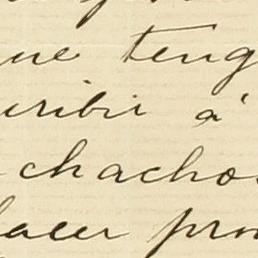 ue teng
uribir á
chachos
lacer pro